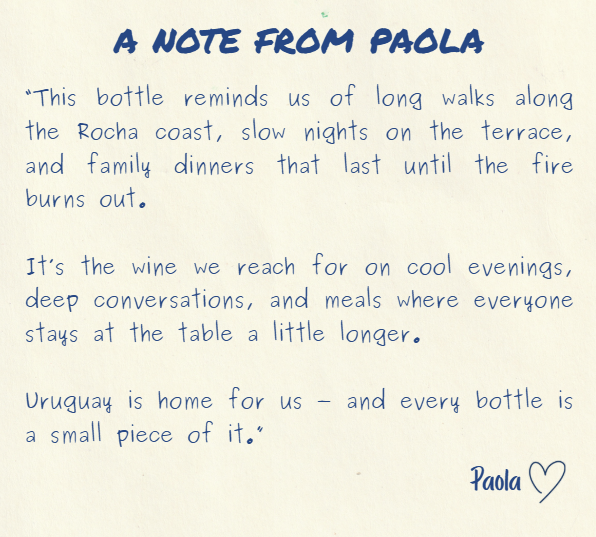 A NOTE FROM PAOLA
"This bottle reminds us of long walks along
the Rocha coast, slow nights on the terrace,
and family dinners that last until the fire
burns out.
It's the wine we reach for on cool evenings,
deep conversations, and meals where everyone
stays at the table a little longer.
Uruguay is home for us – and every bottle is
a small piece of it."
Paola